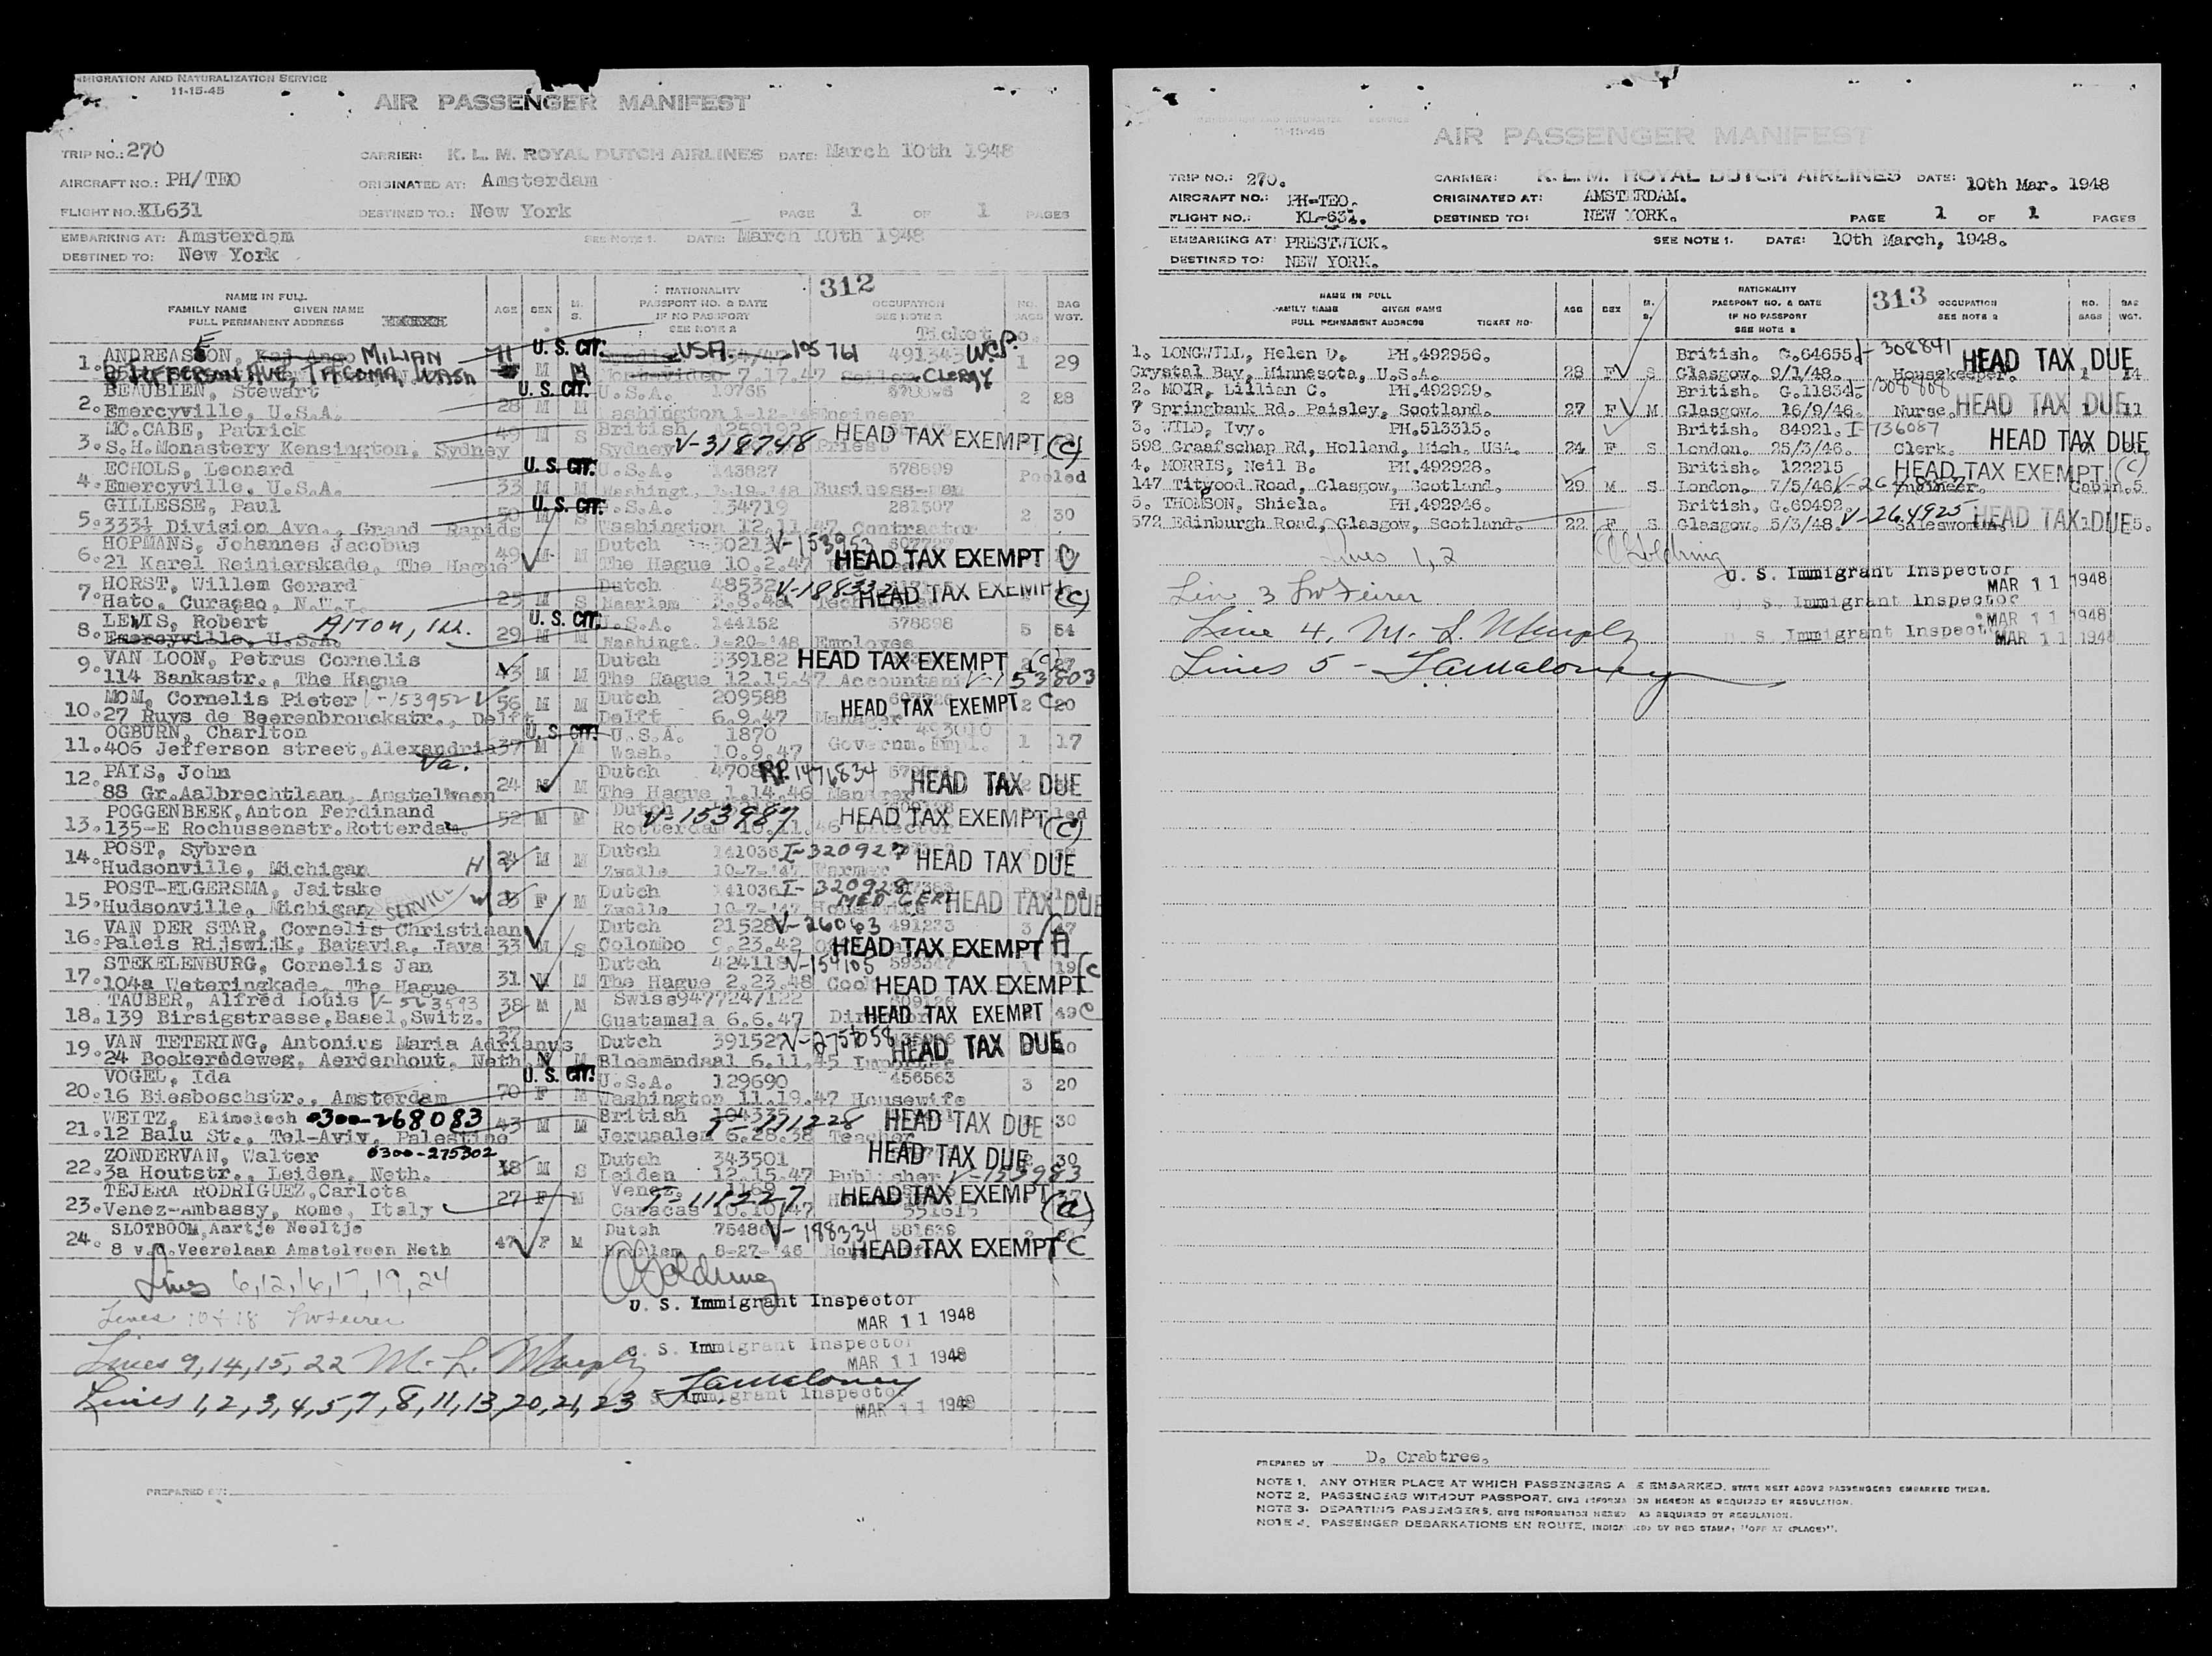 IMMIGRATION AND NATURALIZATION SERVICE
11-15-45
AIR PASSENGER MANIFEST
TRIP NO.: 270 CARRIER: K. L. M. ROYAL DUTCH AIRLINES DATE: March 10th 1948
AIRCRAFT NO.: PH/TEO ORIGINATED AT: Amsterdam
FLIGHT NO. KL631 DESTINED TO.: New York PAGE 1 OF 1 PAGES
EMBARKING AT: Amsterdam SEE NOTE 1. DATE: March 10th 1948
DESTINED TO: New York
312
NAME IN FULL NATIONALITY
FAMILY NAME GIVEN NAME AGE SEX M. S. PASSPORT NO. & DATE OCCUPATION NO. BAGS BAG WGT.
FULL PERMANENT ADDRESS IF NO PASSPORT SEE NOTE 2
SEE NOTE 2 Ticket no.
1. ANDREASEN, MILIAN 71 U. S. CIT. USA. 105761 491343 W.C.P. 1 29
JEFFERSON AVE, TACOMA, WASH M 7.17.47 CLERGY
BEAUBIEN, Stewart U. S. CIT. U.S.A. 10765
2. Emercyville, U.S.A. 28 M M Washington 1-12-'48 Engineer 2 28
MC.CABE, Patrick 49 M S British A259192
3. S.H. Monastery Kensington, Sydney Sydney V-318748 Priest HEAD TAX EXEMPT (C)
ECHOLS, Leonard U. S. CIT. U.S.A. 143827 578899 Pooled
4. Emercyville, U.S.A. 33 M M Washingt. 1-19-'48 Business-man
GILLESSE, Paul U. S. CIT. U.S.A. 134719 281507
5. 333½ Division Ave., Grand Rapids 50 M S Washington 12.11.47 Contractor 2 30
HOPMANS, Johannes Jacobus 49 M Dutch V-153953
6. 21 Karel Reinierskade, The Hague The Hague 10.2.47 HEAD TAX EXEMPT C
HORST, Willem Gerard Dutch 48532 V-188332
7. Hato, Curaçao, N.W.I. 25 M S Haarlem HEAD TAX EXEMPT (C)
LEWIS, Robert ALTON, ILL. U. S. CIT. U.S.A. 144152 578898
8. Emercyville, U.S.A. 29 M M Washingt. 1-20-'48 Employee 5 54
9. VAN LOON, Petrus Cornelis 43 M M Dutch 539182 HEAD TAX EXEMPT (C) 27
114 Bankastr., The Hague The Hague 12.15.47 Accountant V-153803
MOM, Cornelis Pieter V-153952 56 M M Dutch 209588 607726
10. 27 Ruys de Beerenbrouckstr., Delft Delft 6.9.47 Manager HEAD TAX EXEMPT C 2 20
OGBURN, Charlton U. S. CIT. U.S.A. 1870 493010
11. 406 Jefferson street, Alexandria 37 M M Wash. 10.9.47 Governm. Empl. 1 17
Va.
12. PAIS, John 24 M M Dutch 4708 RP.1476834
88 Gr.Aalbrechtlaan, Amstelveen The Hague 1.14.46 Manager HEAD TAX DUE
POGGENBEEK, Anton Ferdinand 52 M M Dutch V-153987
13. 135-E Rochussenstr. Rotterdam Rotterdam 10.11.46 Director HEAD TAX EXEMPT (C)
14. POST, Sybren H 24 M M Dutch 141036 I-320927 HEAD TAX DUE
Hudsonville, Michigan Zwolle 10-7-'47 Farmer
POST-ELGERSMA, Jaitske Dutch 141036 I-320928
15. Hudsonville, Michigan SERVICE W 23 F M Zwolle 10-7-'47 MED CERT HEAD TAX DUE
VAN DER STAR, Cornelis Christiaan Dutch 21528 V-26063 491233 3 47
16. Paleis Rijswijk, Batavia, Java 33 M S Colombo 9.23.42 HEAD TAX EXEMPT A
STEKELENBURG, Cornelis Jan Dutch 424118 V-154105 593347
17. 104a Weteringkade, The Hague 31 M M The Hague 2.23.48 Cook HEAD TAX EXEMPT 1 19 C
TAUBER, Alfred Louis V-563593 38 M M Swiss 9477247/122
18. 139 Birsigstrasse, Basel, Switz. Guatamala 6.6.47 HEAD TAX EXEMPT 49 C
19. VAN TETERING, Antonius Maria Adrianus 37 Dutch 391527 V-2757058
24 Boekenrodeweg, Aerdenhout, Neth M M Bloemendaal 6.11.45 Importer HEAD TAX DUE
VOGEL, Ida U. S. CIT. U.S.A. 129690 456563
20. 16 Biesboschstr., Amsterdam 70 F M Washington 11.19.47 Housewife 3 20
WEITZ, Elimelech 0300-268083 British 104335 T-111228
21. 12 Balu St., Tel-Aviv, Palestine 43 M M Jerusalem 6.28.38 Teacher HEAD TAX DUE 30
ZONDERVAN, Walter 0300-275302 Dutch 343501 HEAD TAX DUE
22. 3a Houtstr., Leiden, Neth. 38 M S Leiden 12.15.47 Publisher V-153983 30
TEJERA RODRIGUEZ, Carlota Venez. 1169 T-111227
23. Venez-Ambassy, Rome, Italy 27 F M Caracas 10.10.47 HEAD TAX EXEMPT (a) 551615
SLOTBOOM, Aartje Neeltje Dutch 75486 V-188334 581639
24. 8 v.d.Veerelaan Amstelveen Neth 47 F M 8-27-'46 HEAD TAX EXEMPT C
Lines 6,12,16,17,19,24 Golding
U. S. Immigrant Inspector
MAR 11 1948
Lines 10 + 18
U. S. Immigrant Inspector
MAR 11 1948
Lines 9,14,15,22 M. L. Murphy
Lines 1,2,3,4,5,7,8,11,13,20,21,23 Immigrant Inspector
MAR 11 1948
PREPARED BY:
11-15-45
AIR PASSENGER MANIFEST
TRIP NO.: 270. CARRIER: K. L. M. ROYAL DUTCH AIRLINES DATE: 10th Mar. 1948
AIRCRAFT NO.: PH-TEO. ORIGINATED AT: AMSTERDAM.
FLIGHT NO.: KL-631. DESTINED TO: NEW YORK. PAGE 1 OF 1 PAGES
EMBARKING AT: PRESTWICK. SEE NOTE 1. DATE: 10th March, 1948.
DESTINED TO: NEW YORK.
313
NAME IN FULL NATIONALITY
FAMILY NAME GIVEN NAME AGE SEX M. S. PASSPORT NO. & DATE OCCUPATION NO. BAGS BAG WGT.
FULL PERMANENT ADDRESS TICKET NO. IF NO PASSPORT SEE NOTE 2
SEE NOTE 2
1. LONGWILL, Helen D. PH.492956. British. C.64655 I-308841 HEAD TAX DUE
Crystal Bay, Minnesota, U.S.A. 28 F S Glasgow. 9/1/48. Housekeeper. 1 14
2. MOIR, Lillian C. PH.492929. British. G.11834 I-308808
7 Springbank Rd. Paisley, Scotland. 27 F M Glasgow. 16/9/46. Nurse. HEAD TAX DUE 11
3. WILD, Ivy. PH.513315. British. 84921. I-736087
598 Graafschap Rd, Holland, Mich. USA. 24 F S London. 25/3/46. Clerk. HEAD TAX DUE
4. MORRIS, Neil B. PH.492928. British. 122215 HEAD TAX EXEMPT (C)
147 Titwood Road, Glasgow, Scotland. 29 M S London. 7/5/46 Engineer. Cabin. 5
5. THOMSON, Shiela. PH.492946. British. G.69492. V-264925
572 Edinburgh Road, Glasgow, Scotland. 22 F S Glasgow. 5/3/48. Saleswoman HEAD TAX DUE 5.
Lines 1,2 Golding
U. S. Immigrant Inspector
MAR 11 1948
Line 3
U. S. Immigrant Inspector
MAR 11 1948
Line 4. M. L. Murphy
U. S. Immigrant Inspector
MAR 11 1948
Lines 5 -
PREPARED BY D. Crabtree.
NOTE 1. ANY OTHER PLACE AT WHICH PASSENGERS ARE EMBARKED, STATE NEXT ABOVE PASSENGERS EMBARKED THERE.
NOTE 2. PASSENGERS WITHOUT PASSPORT, GIVE INFORMATION HEREON AS REQUIRED BY REGULATION.
NOTE 3. DEPARTING PASSENGERS, GIVE INFORMATION HEREON AS REQUIRED BY REGULATION.
NOTE 4. PASSENGER DEBARKATIONS EN ROUTE, INDICATED BY RED STAMP: "OFF AT (PLACE)".